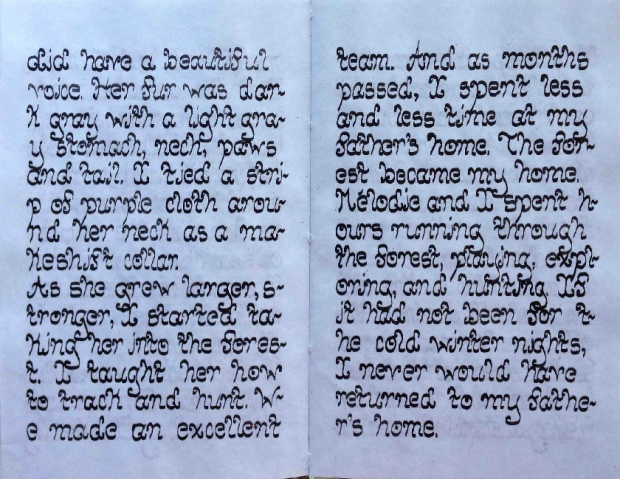 did have a beautiful
voice. Her fur was dar-
k gray with a light gra-
y stomach, neck, paws
and tail. I tied a stri-
p of purple cloth arou-
nd her neck as a ma-
keshift collar.
As she grew larger, s-
tronger, I started ta-
king her into the fores-
t. I taught her how
to track and hunt. W-
e made an excellent
team. And as months
passed, I spent less
and less time at my
father's home. The for-
est became my home.
Mélodie and I spent h-
ours running through
the forest, playing, expl-
oring, and hunting. If
it had not been for t-
he cold winter nights,
I never would have
returned to my fathe-
r's home.